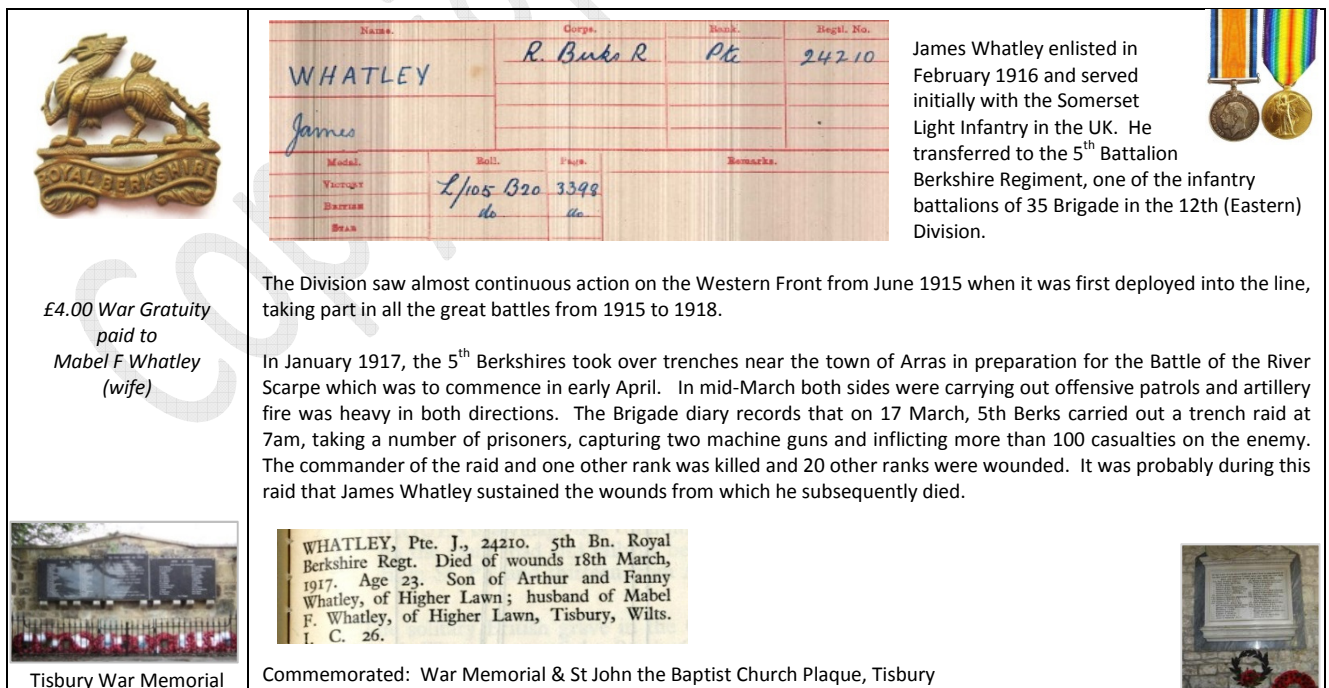 Name.
Corps.
Rank.
Regtl. No.
WHATLEY
R. Berks R
Pte
24210
James
Medal.
Roll.
Page.
Remarks.
VICTORY
L/105 B20
3398
BRITISH
do
do
STAR
ROYAL BERKSHIRE
James Whatley enlisted in
February 1916 and served
initially with the Somerset
Light Infantry in the UK. He
transferred to the 5th Battalion
Berkshire Regiment, one of the infantry
battalions of 35 Brigade in the 12th (Eastern)
Division.
£4.00 War Gratuity
paid to
Mabel F Whatley
(wife)
The Division saw almost continuous action on the Western Front from June 1915 when it was first deployed into the line,
taking part in all the great battles from 1915 to 1918.
In January 1917, the 5th Berkshires took over trenches near the town of Arras in preparation for the Battle of the River
Scarpe which was to commence in early April. In mid-March both sides were carrying out offensive patrols and artillery
fire was heavy in both directions. The Brigade diary records that on 17 March, 5th Berks carried out a trench raid at
7am, taking a number of prisoners, capturing two machine guns and inflicting more than 100 casualties on the enemy.
The commander of the raid and one other rank was killed and 20 other ranks were wounded. It was probably during this
raid that James Whatley sustained the wounds from which he subsequently died.
WHATLEY, Pte. J., 24210. 5th Bn. Royal
Berkshire Regt. Died of wounds 18th March,
1917. Age 23. Son of Arthur and Fanny
Whatley, of Higher Lawn; husband of Mabel
F. Whatley, of Higher Lawn, Tisbury, Wilts.
I. C. 26.
Tisbury War Memorial
Commemorated: War Memorial & St John the Baptist Church Plaque, Tisbury